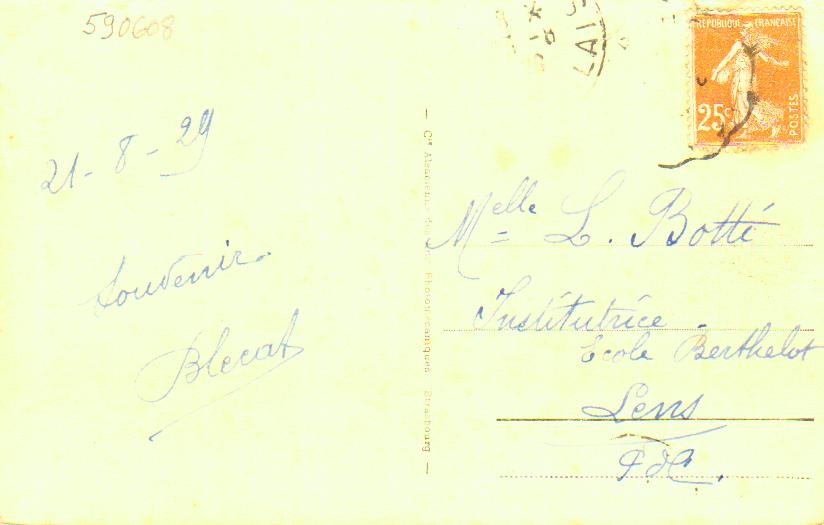 590608
LAIS
RÉPUBLIQUE FRANÇAISE
25c
POSTES
21 - 8 - 29
Souvenir.
Blecat
Cie Alsacienne des Arts Photomécaniques Strasbourg
Melle L. Botté
Institutrice
Ecole Berthelot
Lens
P d C.